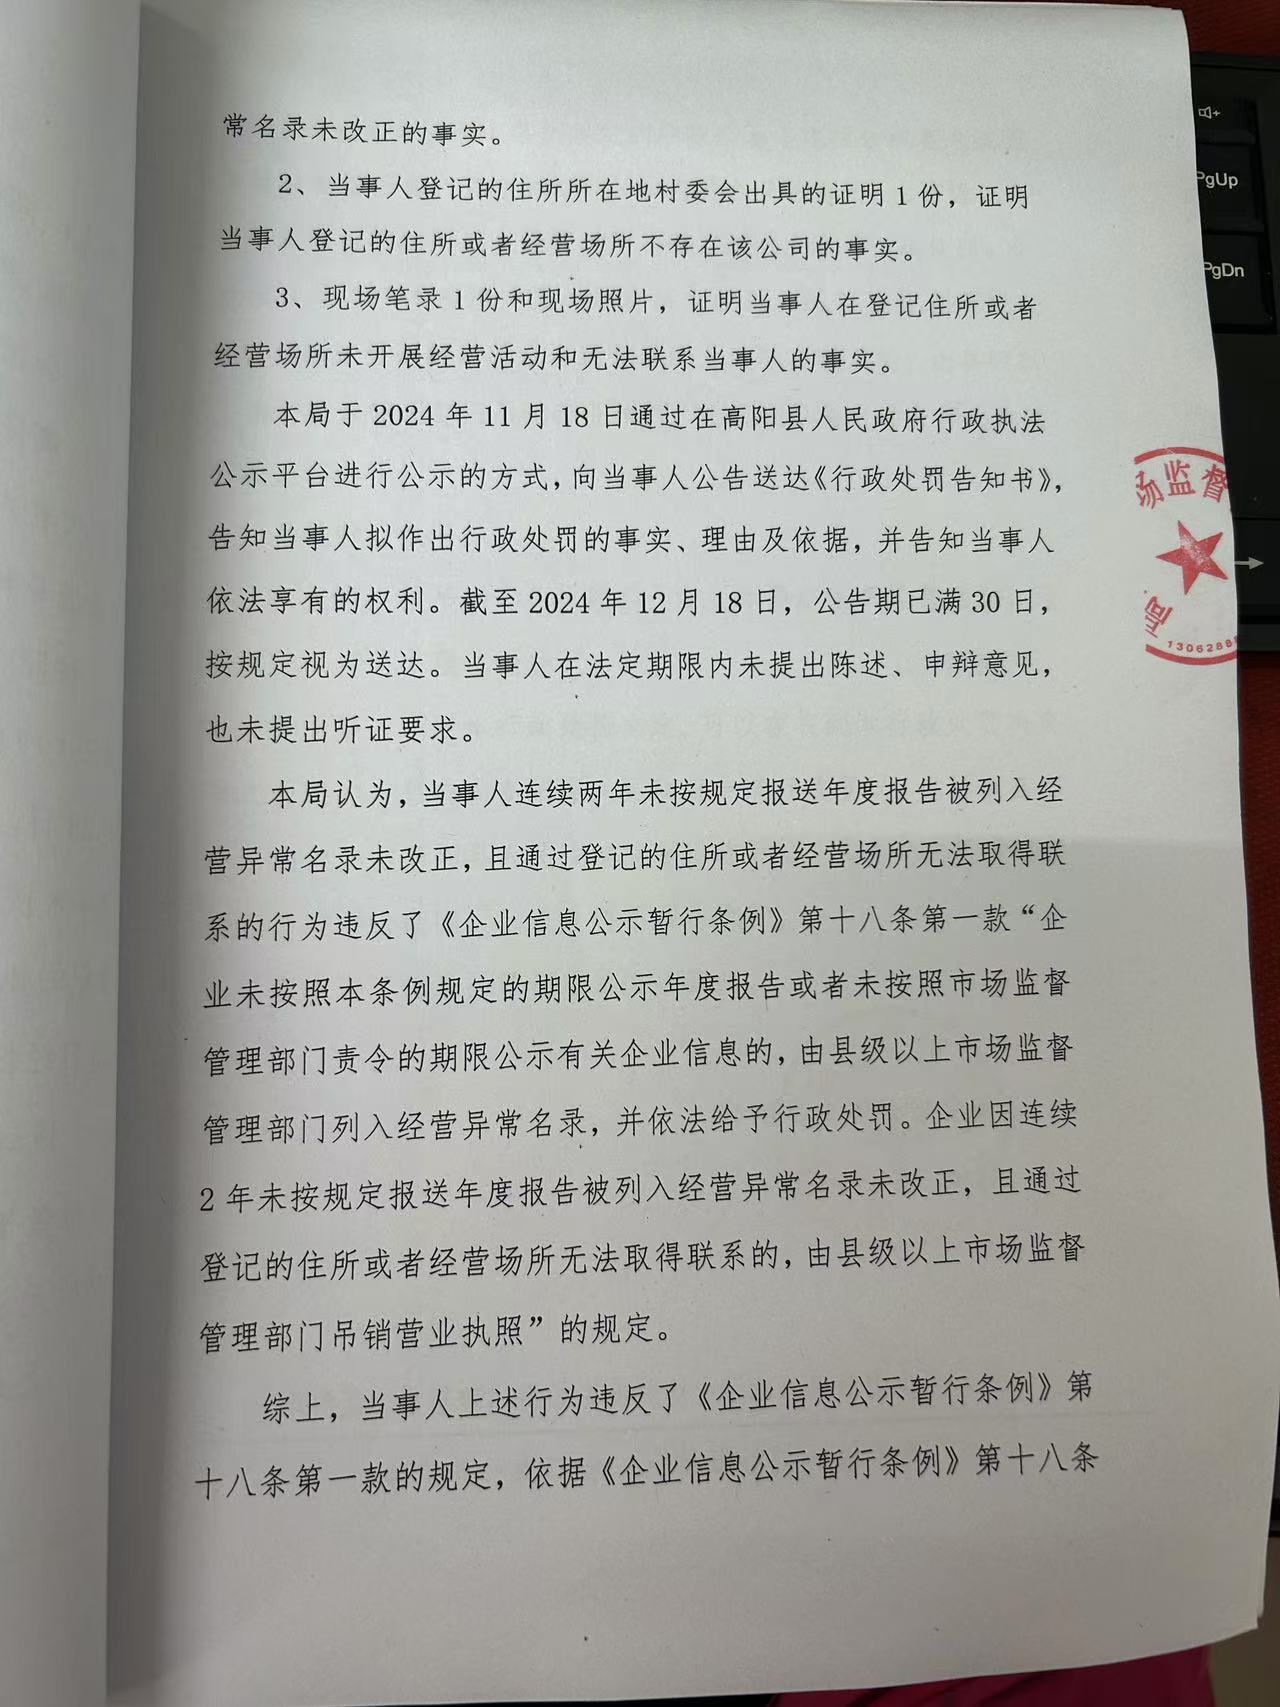 常名录未改正的事实。
2、当事人登记的住所所在地村委会出具的证明1份，证明
当事人登记的住所或者经营场所不存在该公司的事实。
3、现场笔录1份和现场照片，证明当事人在登记住所或者
经营场所未开展经营活动和无法联系当事人的事实。
本局于2024年11月18日通过在高阳县人民政府行政执法
公示平台进行公示的方式，向当事人公告送达《行政处罚告知书》，
告知当事人拟作出行政处罚的事实、理由及依据，并告知当事人
依法享有的权利。截至2024年12月18日，公告期已满30日，
按规定视为送达。当事人在法定期限内未提出陈述、申辩意见，
也未提出听证要求。
本局认为，当事人连续两年未按规定报送年度报告被列入经
营异常名录未改正，且通过登记的住所或者经营场所无法取得联
系的行为违反了《企业信息公示暂行条例》第十八条第一款“企
业未按照本条例规定的期限公示年度报告或者未按照市场监督
管理部门责令的期限公示有关企业信息的，由县级以上市场监督
管理部门列入经营异常名录，并依法给予行政处罚。企业因连续
2年未按规定报送年度报告被列入经营异常名录未改正，且通过
登记的住所或者经营场所无法取得联系的，由县级以上市场监督
管理部门吊销营业执照”的规定。
综上，当事人上述行为违反了《企业信息公示暂行条例》第
十八条第一款的规定，依据《企业信息公示暂行条例》第十八条
场监督
PgUp
PgDn